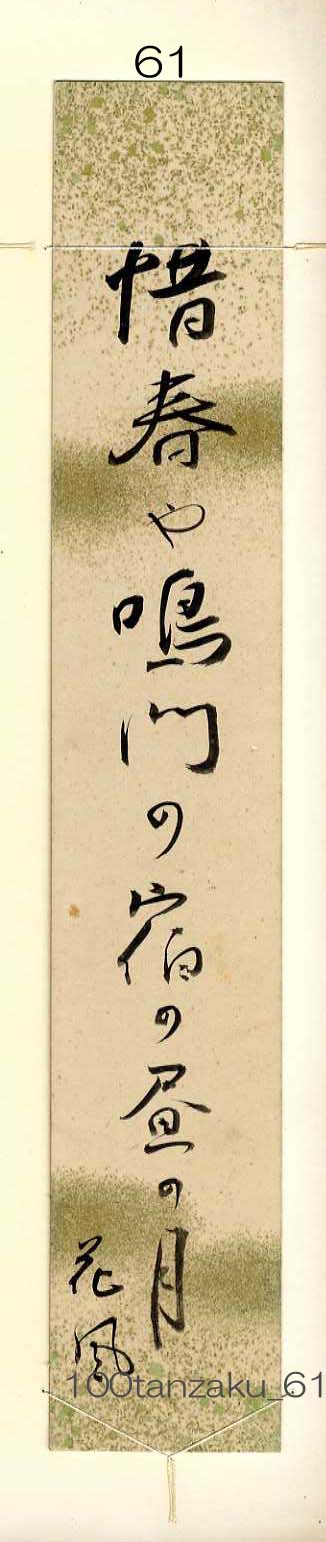 61
惜春や鳴門の宿の昼の月
花風
100tanzaku_61